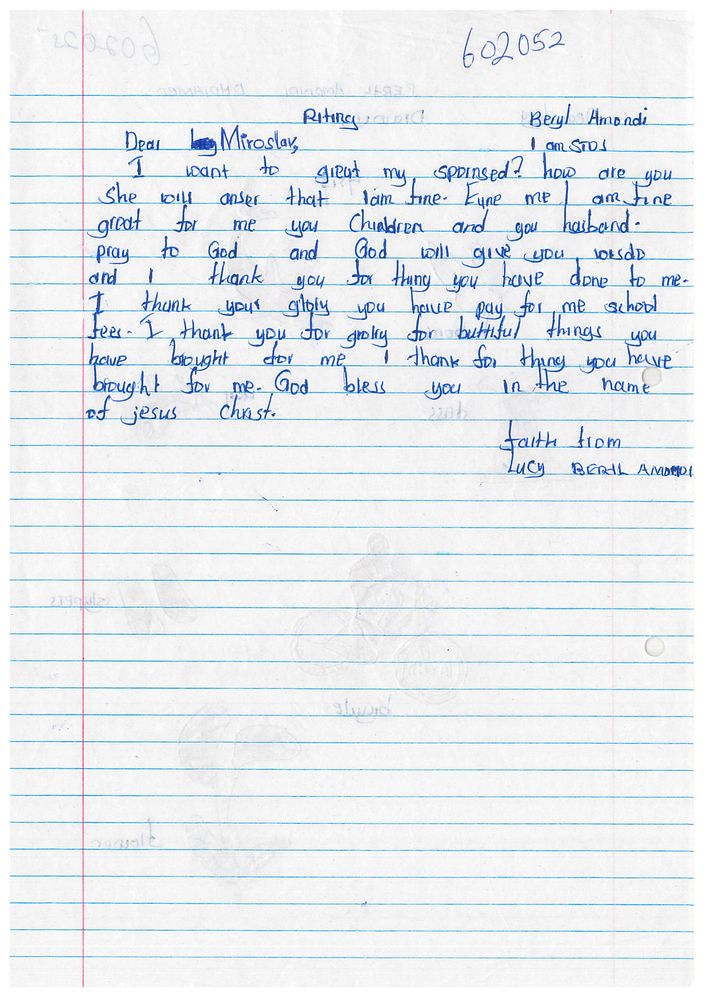 602052
Riting Beryl Amondi
Dear Miroslav, I am STD1
I want to great my spoinsed? how are you
she will anser that I am fine. Eyne me I am fine
great for me you Chialdren and you hasband.
pray to God and God will give you wisdo
and I thank you for thing you have done to me.
I thank your gloly you have pay for me school
fees. I thank you for groly for buttiful things you
have brought for me I thank for thing you have
brought for me. God bless you in the name
of jesus Christ.
faith from
Lucy BERYL AMONDI